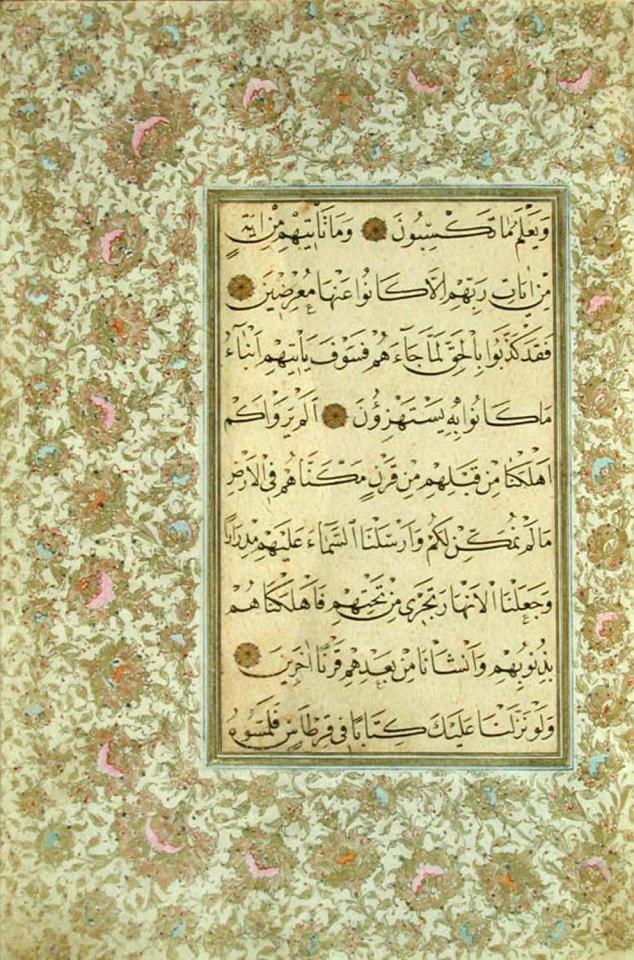 وَيَعْلَمُ مَا تَكْسِبُونَ وَمَا تَأْتِيهِمْ مِنْ اٰيَةٍ
مِنْ اٰيَاتِ رَبِّهِمْ اِلَّا كَانُوا عَنْهَا مُعْرِضِينَ
فَقَدْ كَذَّبُوا بِالْحَقِّ لَمَّا جَاۤءَهُمْ فَسَوْفَ يَأْتِيهِمْ اَنْبَاۤءُ
مَا كَانُوا بِهِ يَسْتَهْزِؤُنَ اَلَمْ يَرَوْا كَمْ
اَهْلَكْنَا مِنْ قَبْلِهِمْ مِنْ قَرْنٍ مَكَّنَّاهُمْ فِى الْاَرْضِ
مَا لَمْ نُمَكِّنْ لَكُمْ وَاَرْسَلْنَا السَّمَاۤءَ عَلَيْهِمْ مِدْرَارًا
وَجَعَلْنَا الْاَنْهَارَ تَجْرِى مِنْ تَحْتِهِمْ فَاَهْلَكْنَاهُمْ
بِذُنُوبِهِمْ وَاَنْشَأْنَا مِنْ بَعْدِهِمْ قَرْنًا اٰخَرِينَ
وَلَوْ نَزَّلْنَا عَلَيْكَ كِتَابًا فِى قِرْطَاسٍ فَلَمَسُوهُ